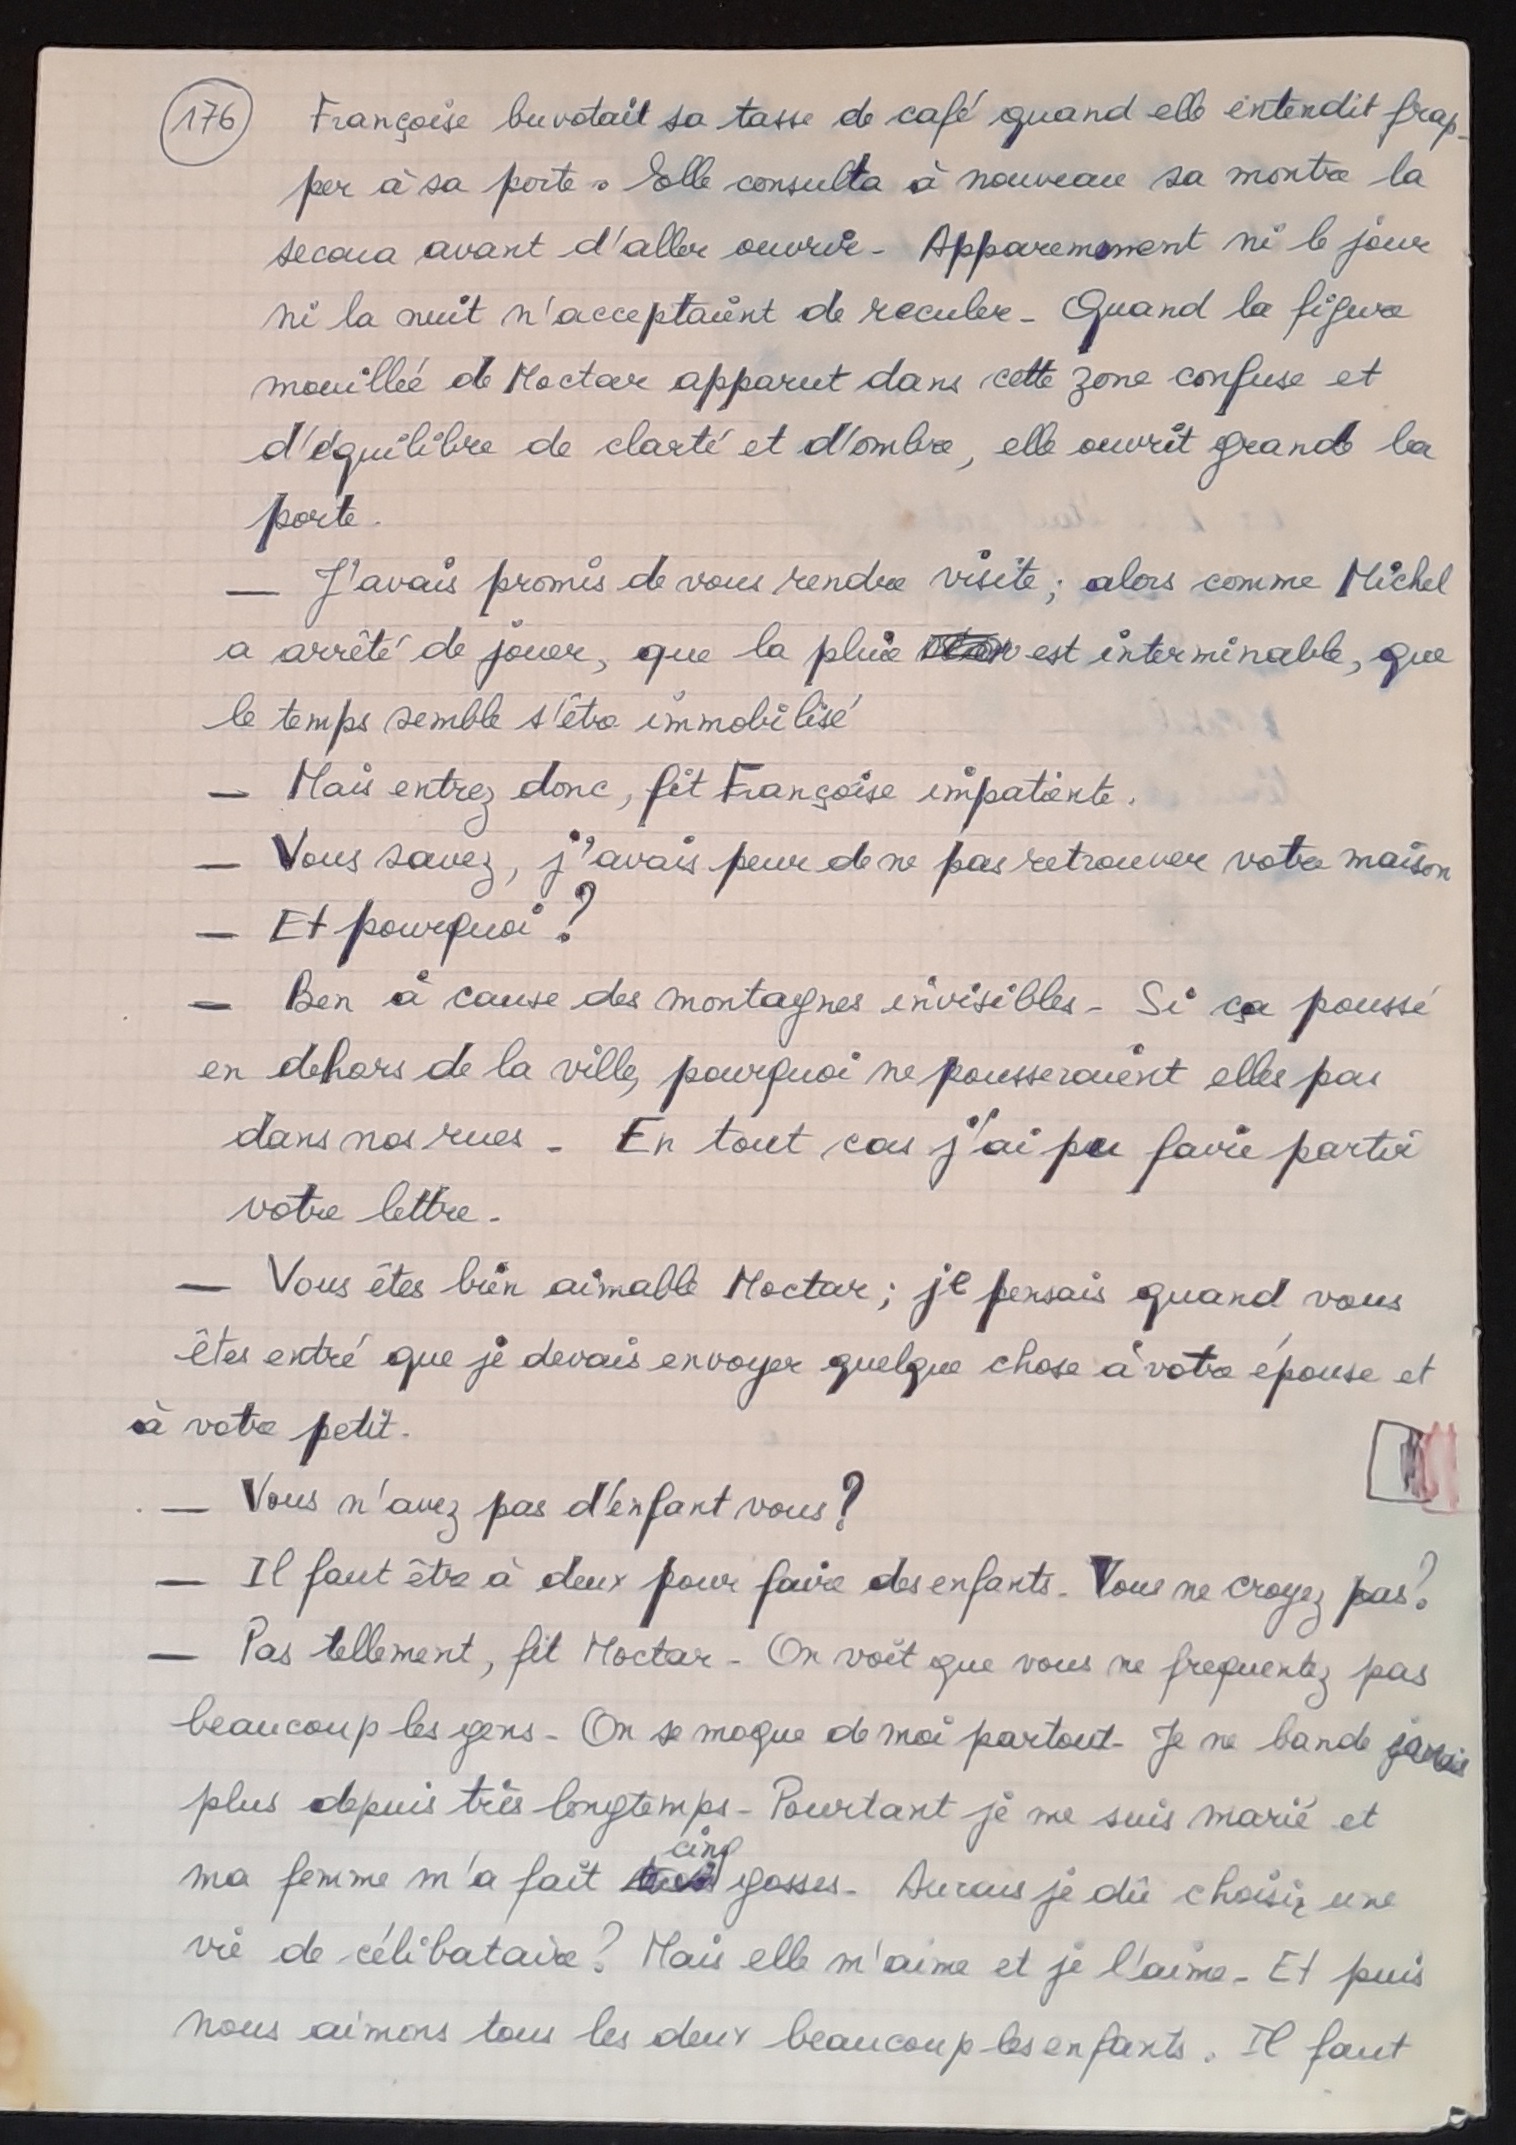 176 Françoise buvotait sa tasse de café quand elle entendit frap-
per à sa porte. Elle consulta à nouveau sa montre la
secoua avant d'aller ouvrir - Apparemment ni le jour
ni la nuit n'acceptaient de reculer - Quand la figure
mouillée de Moctar apparut dans cette zone confuse et
d'équilibre de clarté et d'ombre, elle ouvrit grande la
porte.
— J'avais promis de vous rendre visite ; alors comme Michel
a arrêté de jouer, que la pluie est interminable, que
le temps semble s'être immobilisé
— Mais entrez donc, fit Françoise impatiente.
— Vous savez, j'avais peur de ne pas retrouver votre maison
— Et pourquoi ?
— Ben à cause des montagnes invisibles - Si ça poussé
en dehors de la ville, pourquoi ne pousseraient elles pas
dans nos rues - En tout cas j'ai pu faire partir
votre lettre -
— Vous êtes bien aimable Moctar ; je pensais quand vous
êtes entré que je devais envoyer quelque chose à votre épouse et
à votre petit.
— Vous n'avez pas d'enfant vous ?
— Il faut être à deux pour faire des enfants - Vous ne croyez pas ?
— Pas tellement, fit Moctar - On voit que vous ne frequentez pas
beaucoup les gens - On se moque de moi partout - Je ne bande jamais
plus depuis très longtemps - Pourtant je me suis marié et
ma femme m'a fait cinq gosses - Aurais je dû choisir une
vie de célibataire ? Mais elle m'aime et je l'aime - Et puis
nous aimons tous les deux beaucoup les enfants. Il faut